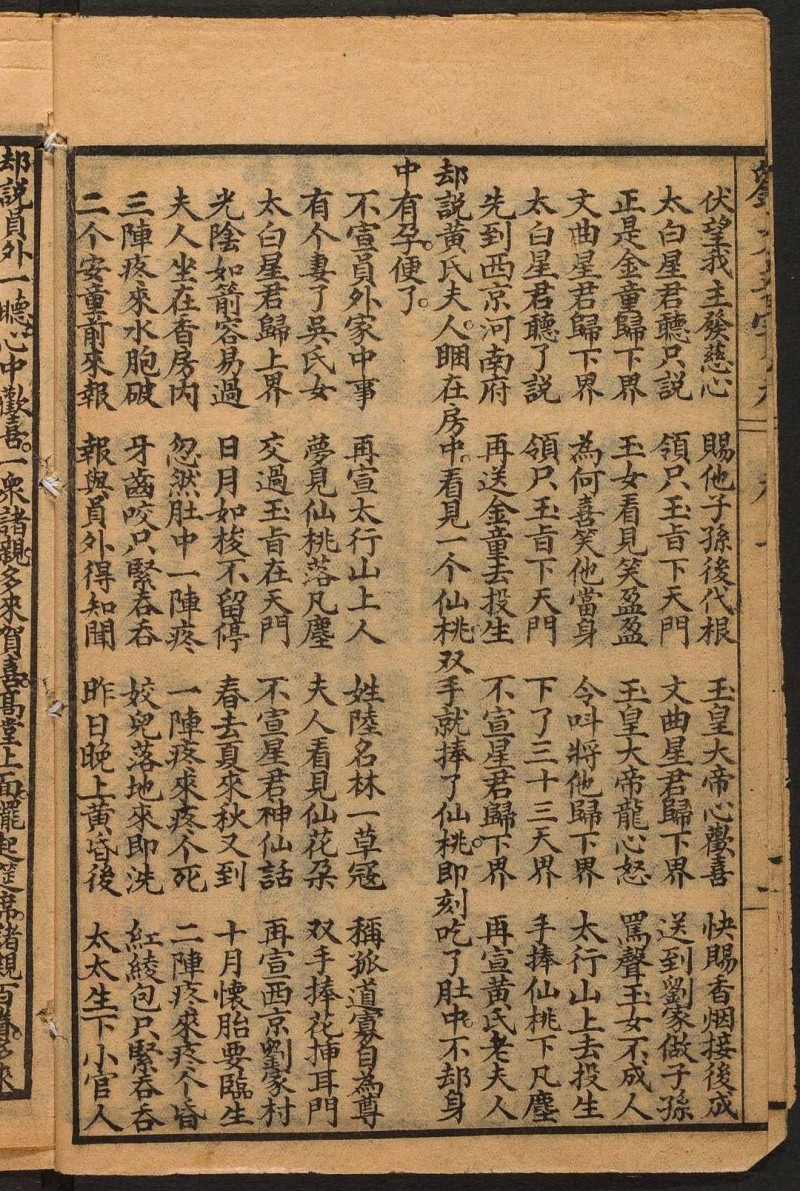 伏望我主發慈心　賜他子孫後代根　玉皇大帝心歡喜　快賜香烟接後成
太白星君聽只說　領只玉旨下天門　文曲星君歸下界　送到劉家做子孫
正是金童歸下界　玉女看見笑盈盈　玉皇大帝龍心怒　罵聲玉女不成人
文曲星君歸下界　為何喜笑他當身　令叫將他歸下界　太行山上去投生
太白星君聽了說　領只玉旨下天門　下了三十三天界　手捧仙桃下凡塵
先到西京河南府　再送金童去投生　不宣星君歸下界　再宣黃氏老夫人
却說黃氏夫人。睏在房中。看見一个仙桃。双手就捧了仙桃。即刻吃了肚中。不却身
中有孕。便了。
不宣員外家中事　再宣太行山上人　姓陸名林一草冦　稱孤道寡自為尊
有个妻了吳氏女　夢見仙桃落凡塵　夫人看見仙花朶　双手捧花揷耳門
太白星君歸上界　交過玉旨在天門　不宣星君神仙話　再宣西京劉家村
光陰如箭容易過　日月如梭不留停　春去夏來秋又到　十月懷胎要臨生
夫人坐在香房內　忽然肚中一陣疼　一陣疼來疼个死　二陣疼來疼个昏
三陣疼來水胞破　牙齒咬只緊吞吞　姣兒落地來即洗　紅綾包只緊吞吞
二个安童前來報　報與員外得知聞　昨日晚上黃昏後　太太生下小官人
却說員外一聽。心中歡喜。一衆諸親。多來賀喜。高堂上面。擺起筵席。諸親百眷。多來